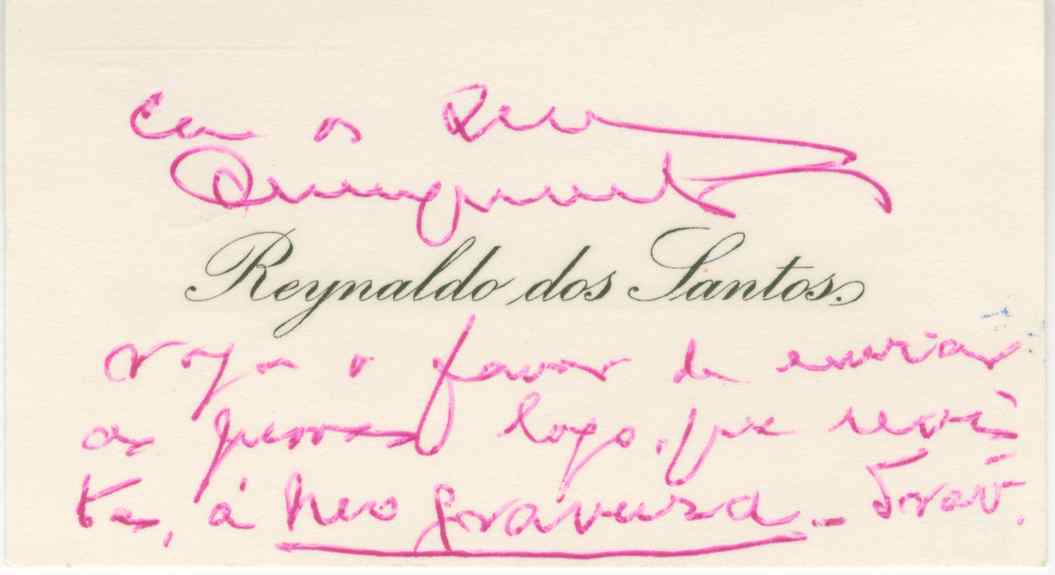 Com os Seus
Cumprimentos
Reynaldo dos Santos
roga o favor de enviar
as provas logo, que revis
tas, á Neogravura - Trav.